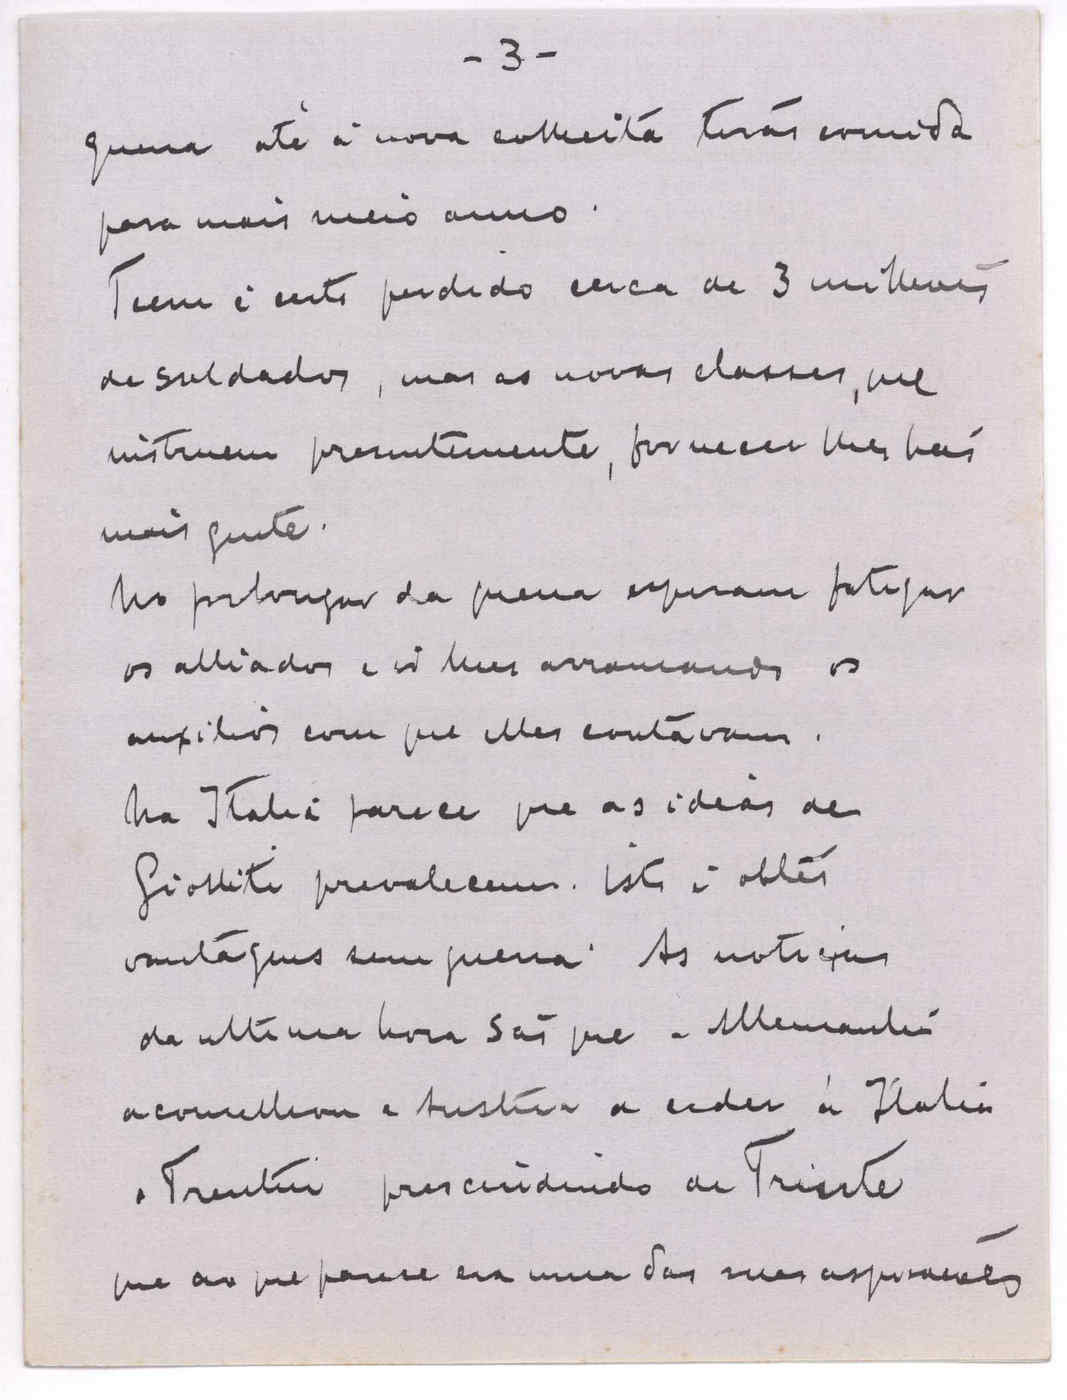 - 3 -
guerra até á nova colheita terão comida
para mais meio anno.
Teem é certo perdido cerca de 3 milhões
de soldados, mas as novas classes, que
instruem presentemente, fornecer lhes hão
mais gente.
No prolongar da guerra esperam fatigar
os alliados e ir lhes arrancando os
auxilios com que elles contávam.
Na Italia parece que as ideias de
Giolliti prevalecem. Isto é obter
vantágens sem guerra. As noticias
da ultima hora são que a Allemanha
aconselhou a Austria a ceder á Italia
o Trentin prescindindo de Trieste
que ao que parece era uma das suas aspirações